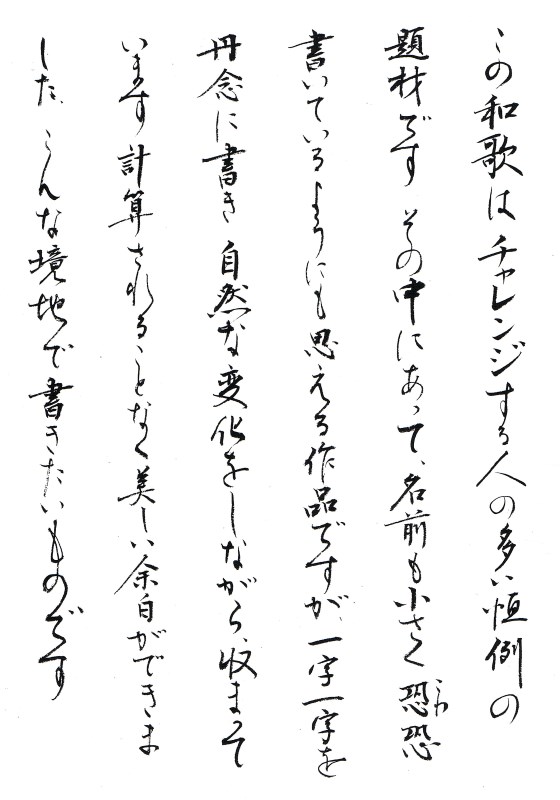 この和歌はチャレンジする人の多い恒例の
題材です その中にあって、名前も小さく恐恐
こわ
書いているようにも思える作品ですが、一字一字を
丹念に書き 自然な変化をしながら、収まって
います 計算されることなく美しい余白ができま
した、こんな境地で書きたいものです